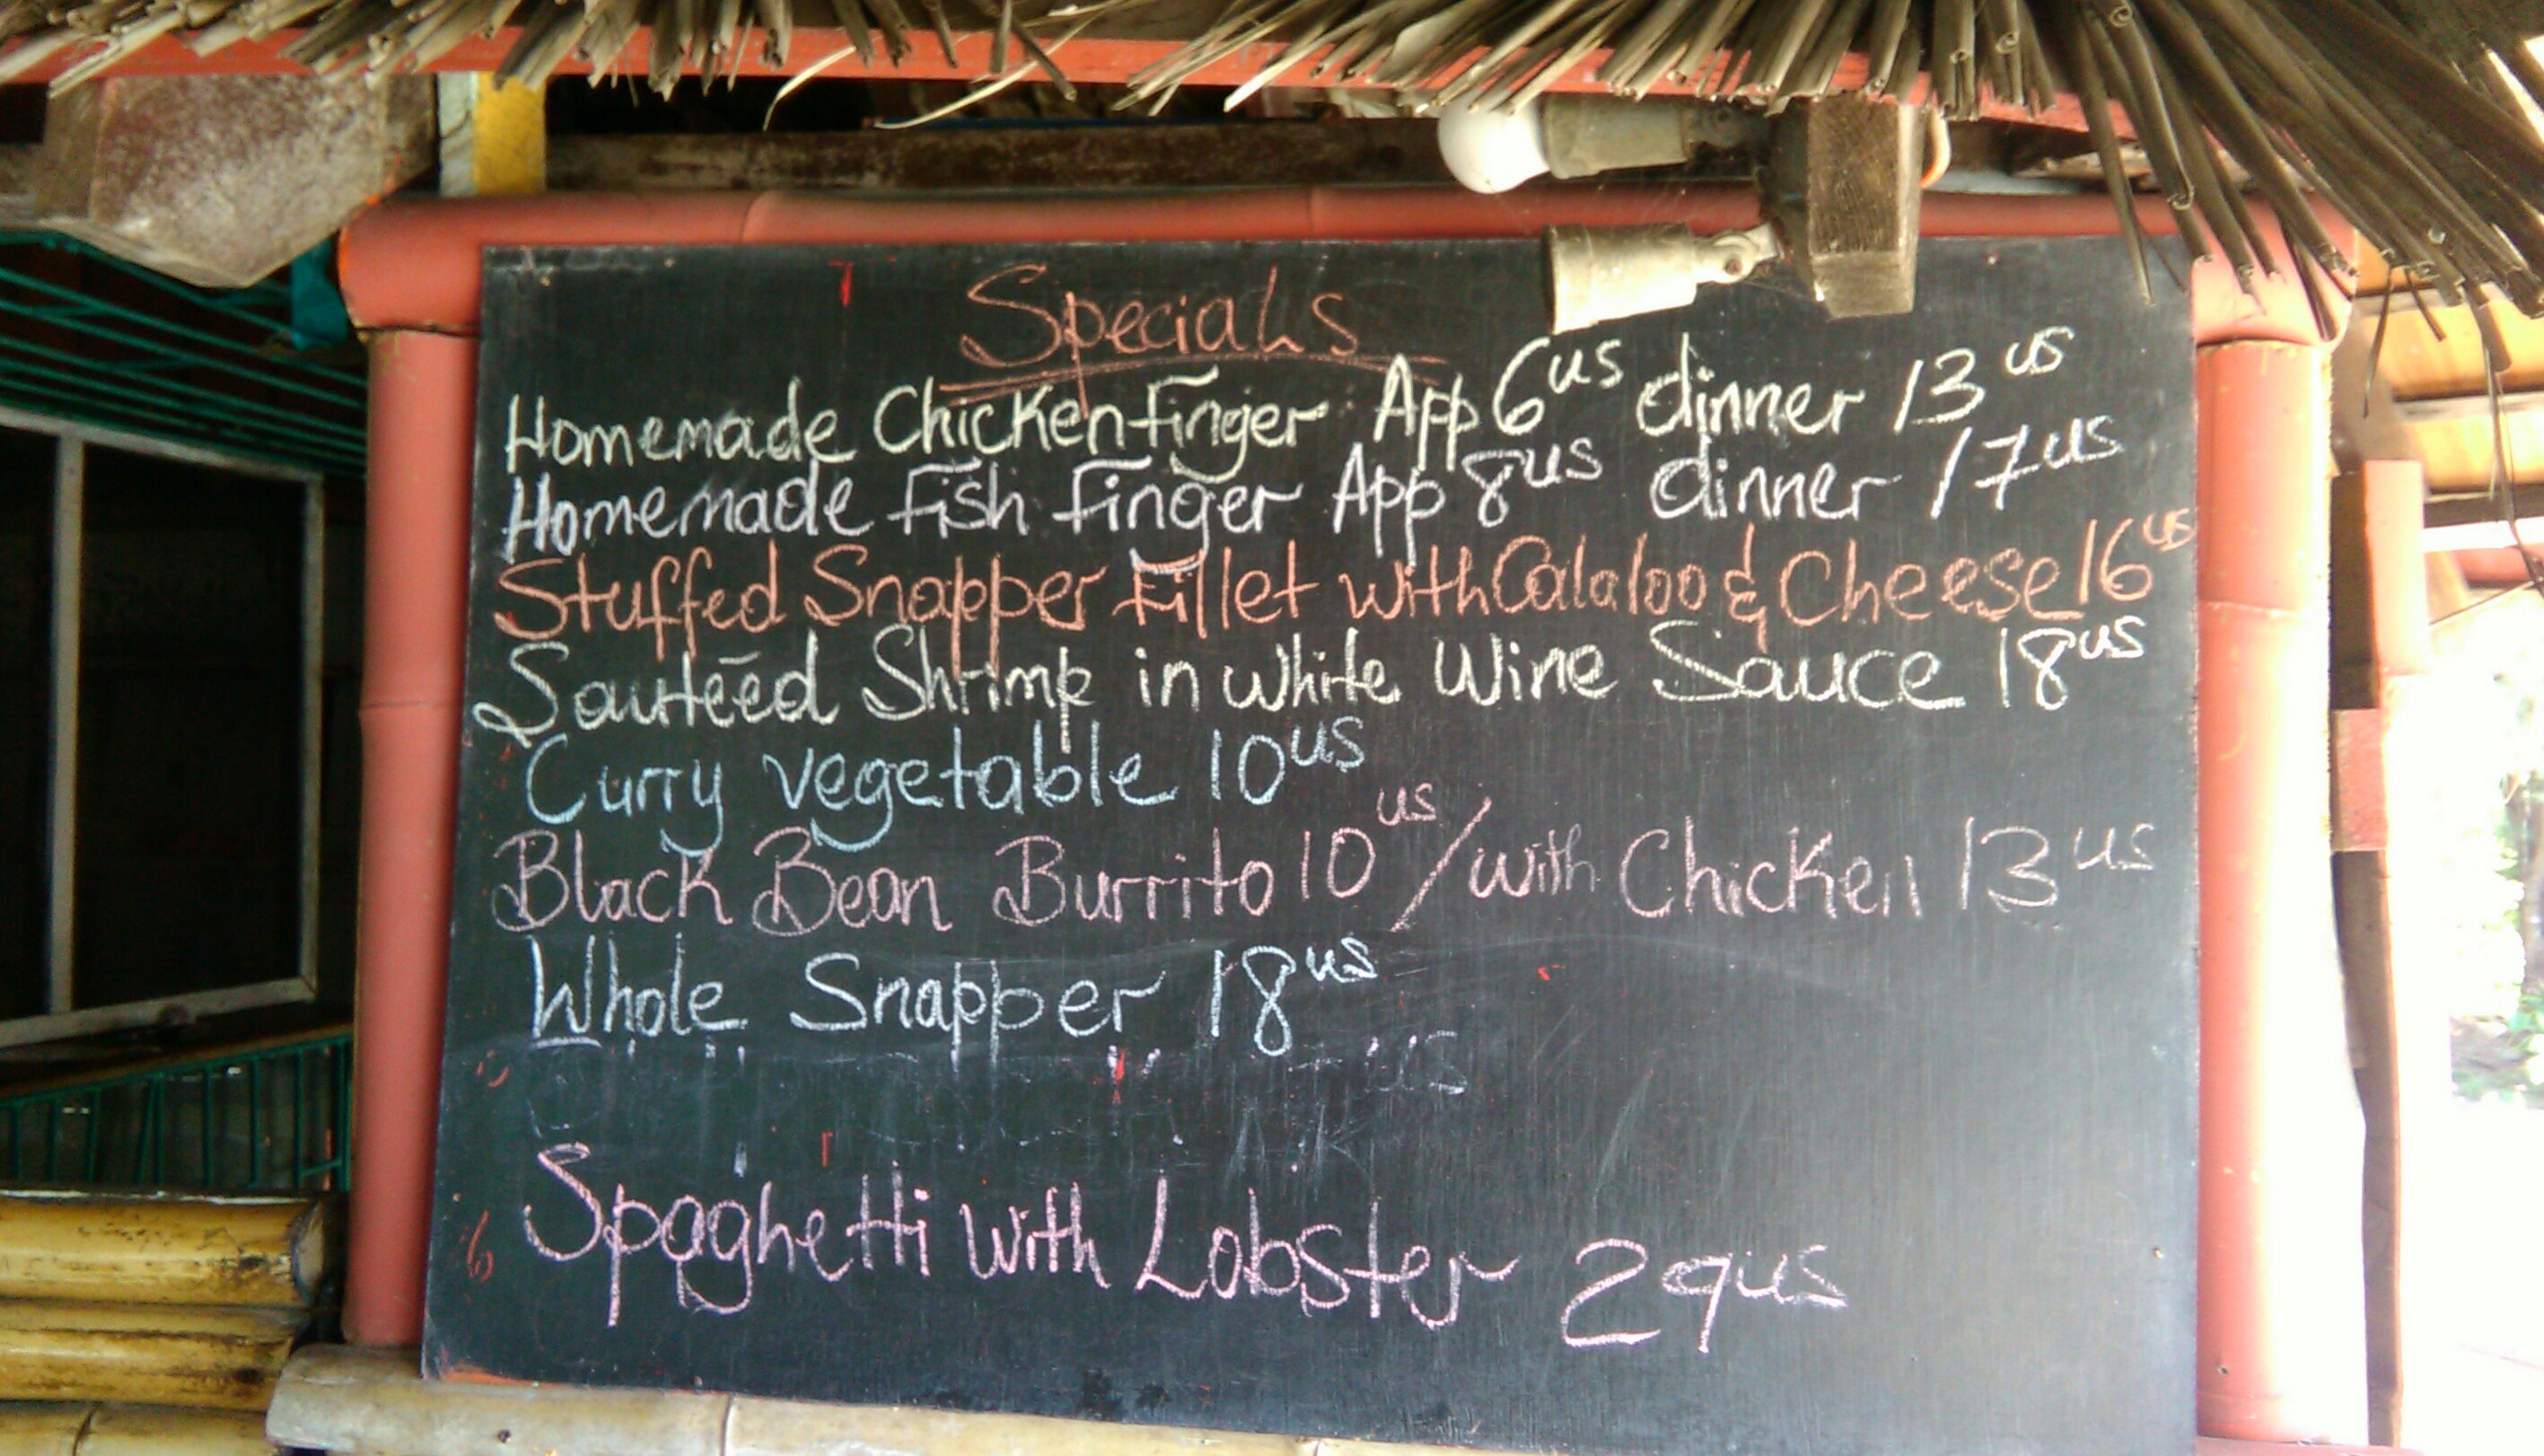 Specials
Homemade Chicken Finger App 6us dinner 13us
Homemade Fish Finger App 8us dinner 17us
Stuffed Snapper Fillet with Calaloo & Cheese 16us
Sauteed Shrimp in white Wine Sauce 18us
Curry vegetable 10us
Black Bean Burrito 10us / with Chicken 13us
Whole Snapper 18us
us
Spaghetti with Lobster 29us